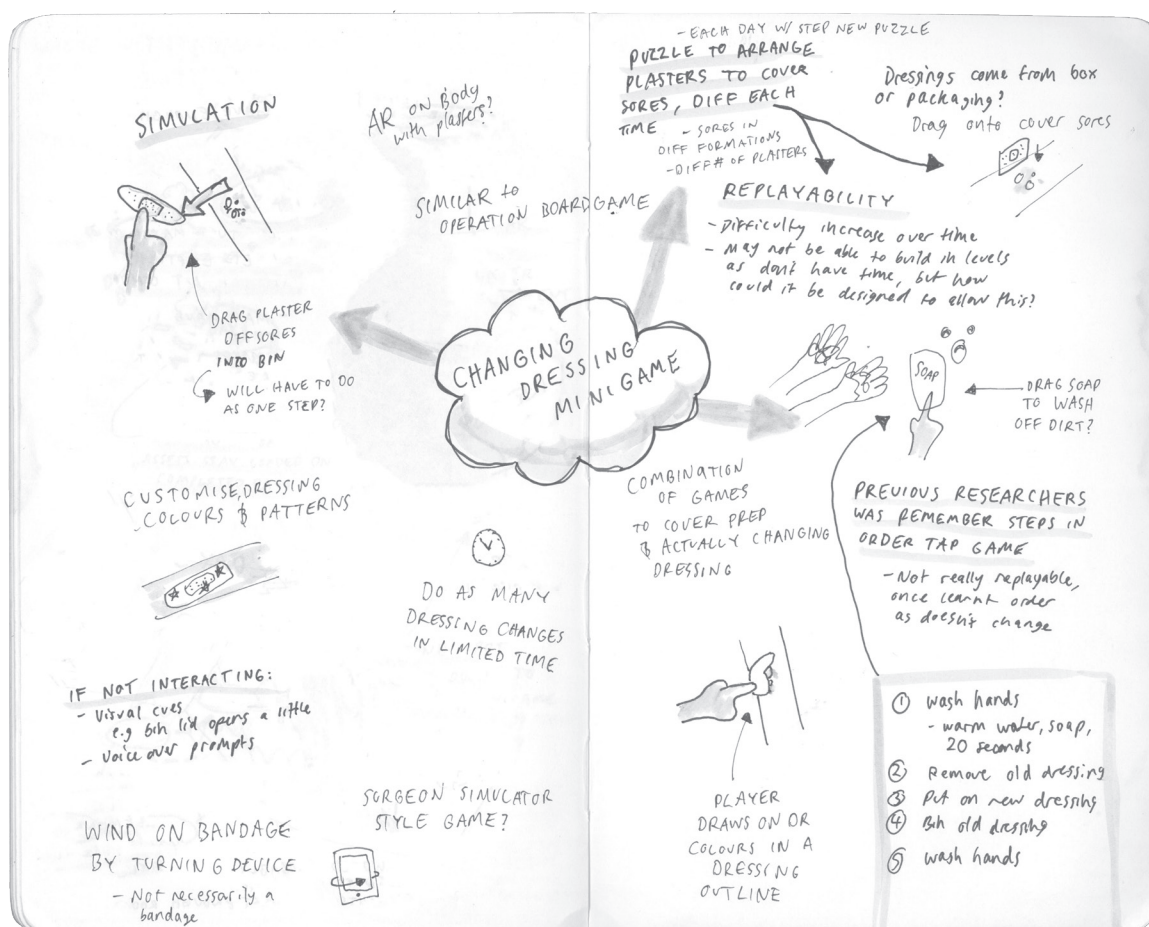 SIMULATION
AR ON BODY
with plasters?
SIMILAR TO
OPERATION BOARDGAME
DRAG PLASTER
OFF SORES
INTO BIN
WILL HAVE TO DO
AS ONE STEP?
CHANGING
DRESSING
MINIGAME
CUSTOMISE DRESSING
COLOURS & PATTERNS
DO AS MANY
DRESSING CHANGES
IN LIMITED TIME
IF NOT INTERACTING:
- Visual cues
e.g bin lid opens a little
- Voice over prompts
SURGEON SIMULATOR
STYLE GAME?
WIND ON BANDAGE
BY TURNING DEVICE
- Not necessarily a
bandage
- EACH DAY W/ STEP NEW PUZZLE
PUZZLE TO ARRANGE
PLASTERS TO COVER
SORES, DIFF EACH
TIME
- SORES IN
DIFF FORMATIONS
- DIFF # OF PLASTERS
Dressings come from box
or packaging?
Drag onto cover sores
REPLAYABILITY
- Difficulty increase over time
- May not be able to build in levels
as don't have time, but how
could it be designed to allow this?
SOAP
DRAG SOAP
TO WASH
OFF DIRT?
COMBINATION
OF GAMES
TO COVER PREP
& ACTUALLY CHANGING
DRESSING
PREVIOUS RESEARCHERS
WAS REMEMBER STEPS IN
ORDER TAP GAME
- Not really replayable,
once learnt order
as doesn't change
PLAYER
DRAWS ON OR
COLOURS IN A
DRESSING
OUTLINE
① wash hands
- warm water, soap,
20 seconds
② Remove old dressing
③ Put on new dressing
④ Bin old dressing
⑤ wash hands